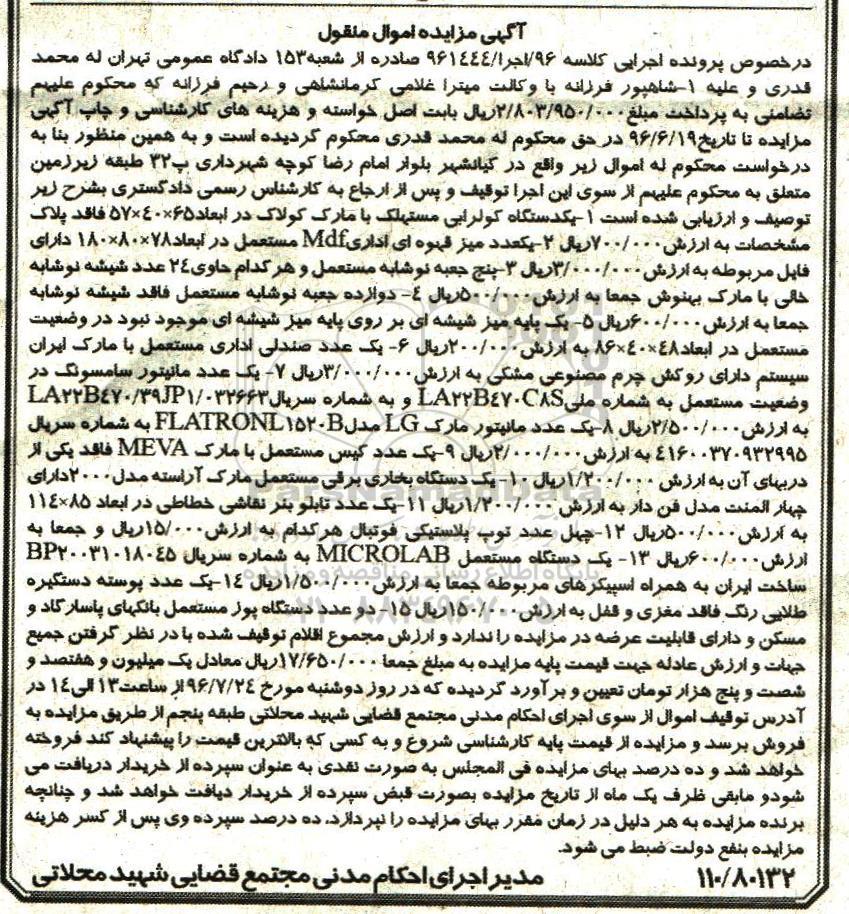 آگهی مزایده اموال منقول
درخصوص پرونده اجرایی کلاسه ۹۶/اجرا/۹۶۱۴۴۴ صادره از شعبه۱۵۳ دادگاه عمومی تهران له محمد
قدری و علیه ۱-شاهپور فرزانه با وکالت میترا غلامی کرمانشاهی و رحیم فرزانه که محکوم علیهم
تضامنی به پرداخت مبلغ۲/۸۰۳/۹۵۰/۰۰۰ریال بابت اصل خواسته و هزینه های کارشناسی و چاپ آگهی
مزایده تا تاریخ۹۶/۶/۱۹ در حق محکوم له محمد قدری محکوم گردیده است و به همین منظور بنا به
درخواست محکوم له اموال زیر واقع در کیانشهر بلوار امام رضا کوچه شهرداری پ۳۲ طبقه زیرزمین
متعلق به محکوم علیهم از سوی این اجرا توقیف و پس از ارجاع به کارشناس رسمی دادگستری بشرح زیر
توصیف و ارزیابی شده است ۱-یکدستگاه کولرابی مستهلک با مارک کولاک در ابعاد۶۵×۴۰×۵۷ فاقد پلاک
مشخصات به ارزش۷۰۰/۰۰۰ریال ۲-یکعدد میز قهوه ای اداریMdf مستعمل در ابعاد۷۸×۸۰×۱۸۰ دارای
فایل مربوطه به ارزش۳/۰۰۰/۰۰۰ریال ۳-پنج جعبه نوشابه مستعمل و هر کدام حاوی۲۴ عدد شیشه نوشابه
خالی با مارک بهنوش جمعا به ارزش۵۰۰/۰۰۰ریال ۴- دوازده جعبه نوشابه مستعمل فاقد شیشه نوشابه
جمعا به ارزش۶۰۰/۰۰۰ریال ۵- یک پایه میز شیشه ای بر روی پایه میز شیشه ای موجود نبود در وضعیت
مستعمل در ابعاد۴۸×۴۰×۸۶ به ارزش۲۰۰/۰۰۰ریال ۶- یک عدد صندلی اداری مستعمل با مارک ایران
سیستم دارای روکش چرم مصنوعی مشکی به ارزش۳/۰۰۰/۰۰۰ریال ۷- یک عدد مانیتور سامسونگ در
وضعیت مستعمل به شماره ملیLA۲۲B۴۷۰C۸S و به شماره سریالLA۲۲B۴۷۰/۳۹JP۱/۰۳۲۶۶۳
به ارزش۲/۵۰۰/۰۰۰ریال ۸-یک عدد مانیتور مارک LG مدلFLATRONL۱۵۲۰B به شماره سریال
۴۱۶۰۰۳۷۰۹۳۲۹۹۵ به ارزش۲/۰۰۰/۰۰۰ریال ۹-یک عدد کیس مستعمل با مارک MEVA فاقد یکی از
دربهای آن به ارزش ۱/۲۰۰/۰۰۰ریال ۱۰- یک دستگاه بخاری برقی مستعمل مارک آراسته مدل۲۰۰۰دارای
چهار المنت مدل فن دار به ارزش ۱/۲۰۰/۰۰۰ریال ۱۱-یک عدد تابلو بنر نقاشی خطاطی در ابعاد ۸۵×۱۱۴
به ارزش۵۰۰/۰۰۰ریال ۱۲-چهل عدد توپ پلاستیکی فوتبال هرکدام به ارزش۱۵/۰۰۰ریال و جمعا به
ارزش۶۰۰/۰۰۰ریال ۱۳- یک دستگاه مستعمل MICROLAB به شماره سریال BP۲۰۰۳۱۰۱۸۰۴۵
ساخت ایران به همراه اسپیکرهای مربوطه جمعا به ارزش۱/۵۰۰/۰۰۰ریال ۱۴-یک عدد پوسته دستگیره
طلایی رنگ فاقد مغزی و قفل به ارزش۱۵۰/۰۰۰ریال ۱۵- دو عدد دستگاه پوز مستعمل بانکهای پاسارگاد و
مسکن و دارای قابلیت عرضه در مزایده را ندارد و ارزش مجموع اقلام توقیف شده با در نظر گرفتن جمیع
جهات و ارزش عادله جهت قیمت پایه مزایده به مبلغ جمعا ۱۷/۶۵۰/۰۰۰ریال معادل یک میلیون و هفتصد و
شصت و پنج هزار تومان تعیین و برآورد گردیده که در روز دوشنبه مورخ ۹۶/۷/۲۴از ساعت۱۳ الی۱۴ در
آدرس توقیف اموال از سوی اجرای احکام مدنی مجتمع قضایی شهید محلاتی طبقه پنجم از طریق مزایده به
فروش برسد و مزایده از قیمت پایه کارشناسی شروع و به کسی که بالاترین قیمت را پیشنهاد کند فروخته
خواهد شد و ده درصد بهای مزایده فی المجلس به صورت نقدی به عنوان سپرده از خریدار دریافت می
شودو مابقی ظرف یک ماه از تاریخ مزایده بصورت قبض سپرده از خریدار دیافت خواهد شد و چنانچه
برنده مزایده به هر دلیل در زمان مقرر بهای مزایده را نپردازد، ده درصد سپرده وی پس از کسر هزینه
مزایده بنفع دولت ضبط می شود.
۱۱۰/۸۰۱۳۲ مدیر اجرای احکام مدنی مجتمع قضایی شهید محلاتی